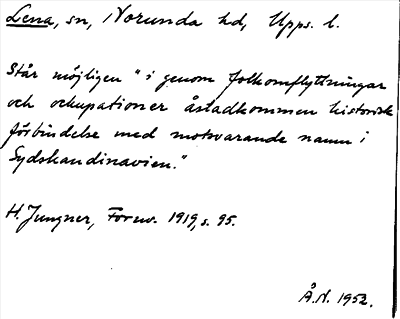 Lena, sn, Norunda hd, Upps. l.
Står möjligen "i genom folkomflyttningar
och ockupationer åstadkommen historisk
förbindelse med motsvarande namn i
Sydskandinavien."
H. Jungner, Fornv. 1919, s. 95.
Å.N. 1952.